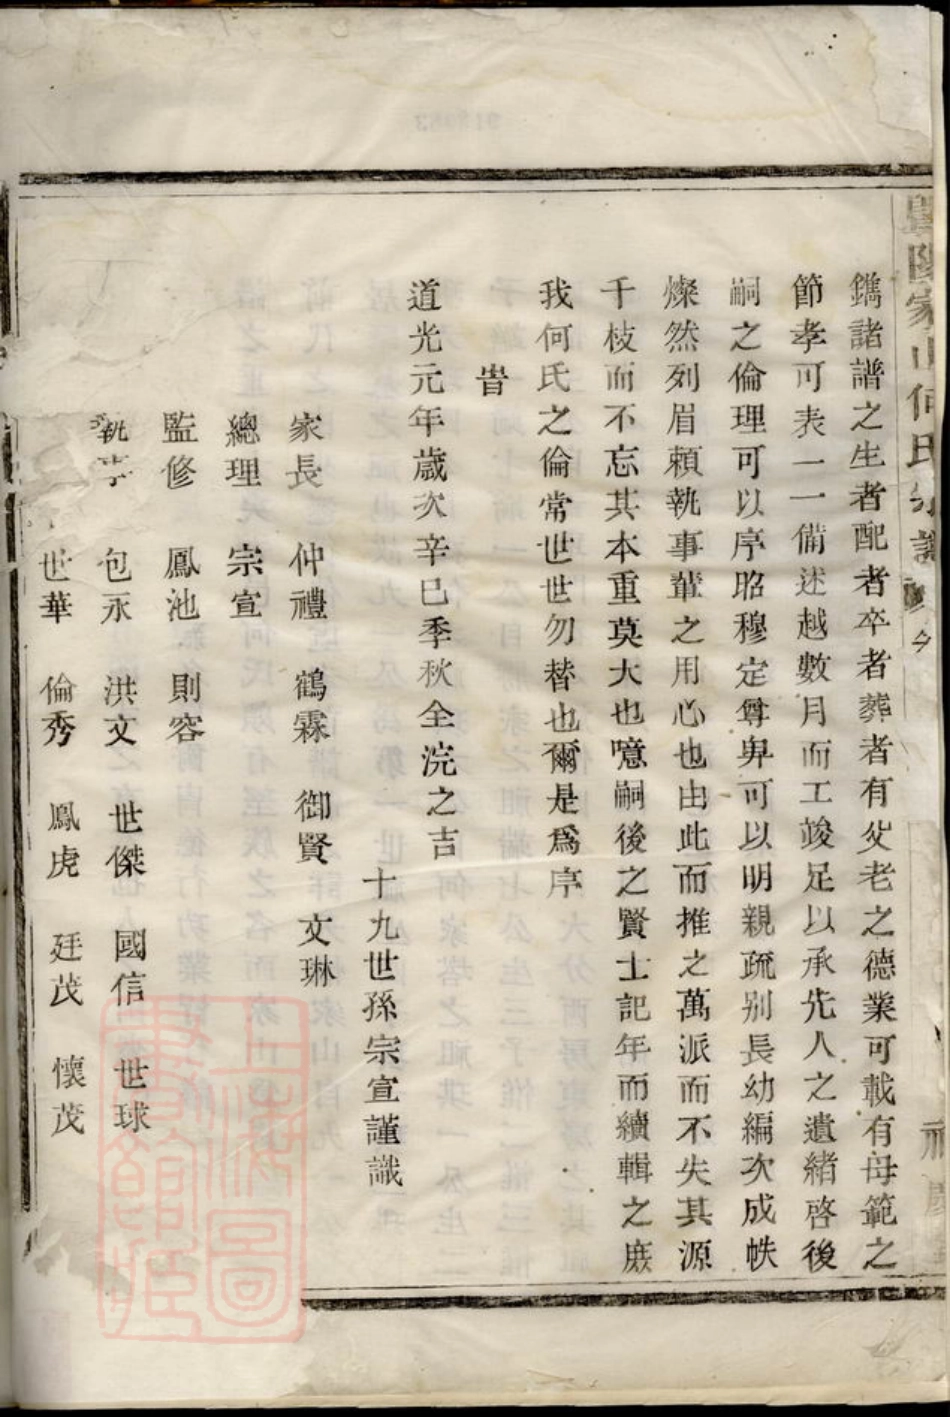 鐫諸譜之生者配者卒者葬者有父老之德業可載有母範之
節孝可表一一備述越數月而工竣足以承先人之遺緒啓後
嗣之倫理可以序昭穆定尊卑可以明親疏别長幼編次成帙
燦然列眉頼執事軰之用心也由此而推之萬派而不失其源
千枝而不忘其本重莫大也噫嗣後之賢士記年而續輯之庶
我何氏之倫常世世勿替也爾是爲序
旹
道光元年歳次辛巳季秋全浣之吉
十九世孫宗宣謹識
家長 仲禮 鶴霖 御賢 文琳
總理 宗宣
監修 鳳池 則容
執事 包永 洪文 世傑 國信 世球
世華 倫秀 鳳虎 廷茂 懷茂
家山何氏宗譜